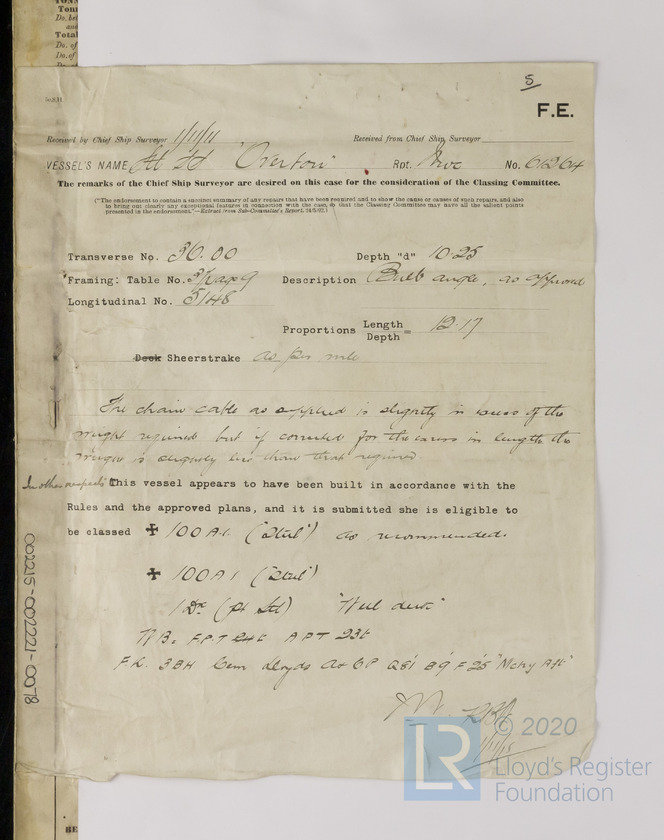 5
F.E.
Received by Chief Ship Surveyor 1/11/11 Received from Chief Ship Surveyor
VESSEL'S NAME "Overton" Rpt. No. 61264
The remarks of the Chief Ship Surveyor are desired on this case for the consideration of the Classing Committee.
("The endorsement to contain a succinct summary of any repairs that have been required and to show the causes of such repairs, and also
to bring out clearly any exceptional features in connection with the case, so that the Classing Committee may have all the salient points
presented in the endorsement."—Extract from Sub-Committee's Report, 24/6/92.)
Transverse No. 30.00 Depth "d" 10.25
Framing: Table No. 3 page 9 Description Bulb angle, as approved
Longitudinal No. 5148
Proportions Length / Depth = 12.17
Deck Sheerstrake as per rule
The chain cable as supplied is slightly in excess of the
weight required but if corrected for the excess in length the
weight is slightly less than that required
In other respects this vessel appears to have been built in accordance with the
Rules and the approved plans, and it is submitted she is eligible to
be classed ✠ 100A.1. ("Steel") as recommended.
✠ 100A1 ("Steel")
1 Dk (pt Stl) "Well deck"
W.B. F.P.T 24t A P T 23t
F.K. 3BH Cem Lloyds A&CP Q81 B9 F25 "Mchy Aft"
002215-002221-0078
LR
© 2020
Lloyd's Register
Foundation